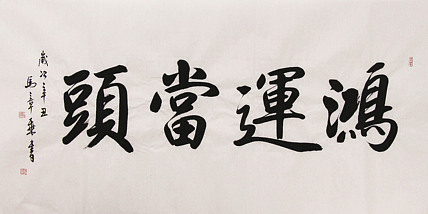 鴻運當頭
歲次辛丑
馬章乘書